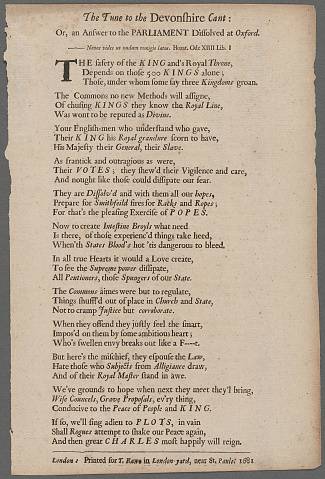 The Tune to the Devonshire Cant:
Or, an Answer to the PARLIAMENT Dissolved at Oxford.
Nonne vides ut nudum remigio latus. Horat. Ode XIIII Lib. I
THE safety of the KING and's Royal Throne,
Depends on those 500 KINGS alone;
Those, under whom some say three Kingdoms groan.
The Commons no new Methods will assigne,
Of chusing KINGS they know the Royal Line,
Was wont to be reputed as Devine.
Your English-men who understand who gave,
Their KING his Royal grandure scorn to have,
His Majesty their General, their Slave.
As frantick and outragious as were,
Their VOTES; they shew'd their Vigilence and care,
And nought like those could dissipate our fear.
They are Dissolv'd and with them all our hopes,
Prepare for Smithfeild fires for Racks and Ropes;
For that's the pleasing Exercise of POPES.
Now to create Intestine Broyls what need
Is there, of those experienc'd things take heed,
When'th States Blood's hot 'tis dangerous to bleed.
In all true Hearts it would a Love create,
To see the Supreme power dissipate,
All Pentioners, those Spungers of our State.
The Commons aimes were but to regulate,
Things shuffl'd out of place in Church and State,
Not to cramp Justice but corroborate.
When they offend they justly feel the smart,
Impos'd on them by some ambitious heart;
Who's swellen envy breaks out like a F—t.
But here's the mischief, they espouse the Law,
Hate those who Subjects from Alligiance draw,
And of their Royal Master stand in awe.
We've grounds to hope when next they meet they'l bring,
Wise Councels, Grave Proposals, ev'ry thing,
Conducive to the Peace of People and KING.
If so, we'll sing adieu to PLOTS, in vain
Shall Rogues attempt to shake our Peace again,
And then great CHARLES most happily will reign.
London: Printed for T. in London-yard, near St. Pauls. 1681